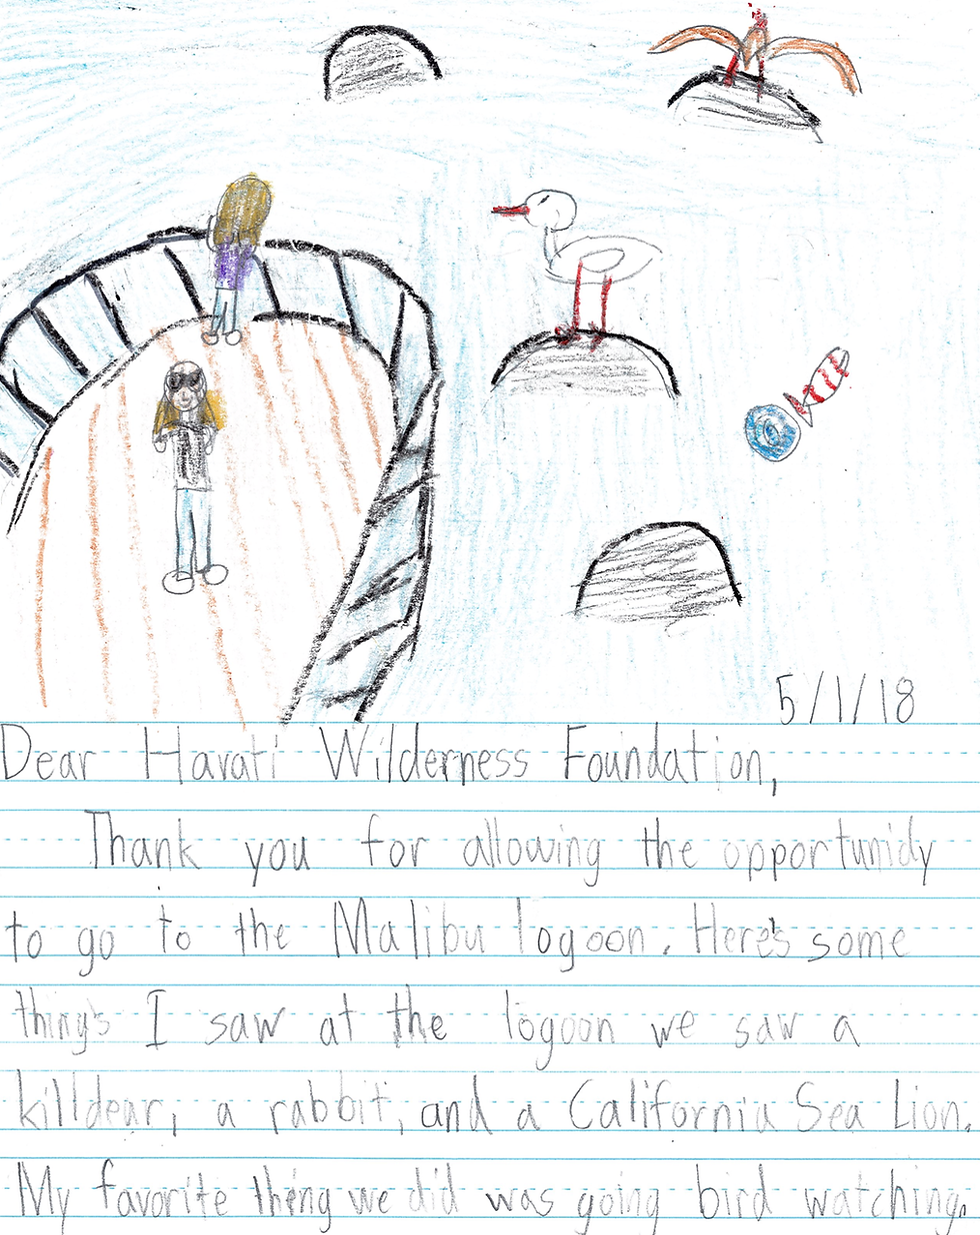 5/1/18
Dear Havati Wilderness Foundation,
Thank you for allowing the opportunidy
to go to the Malibu logoon. Here's some
thing's I saw at the logoon we saw a
killdear, a rabbit, and a California Sea Lion.
My favorite thing we did was going bird watching.